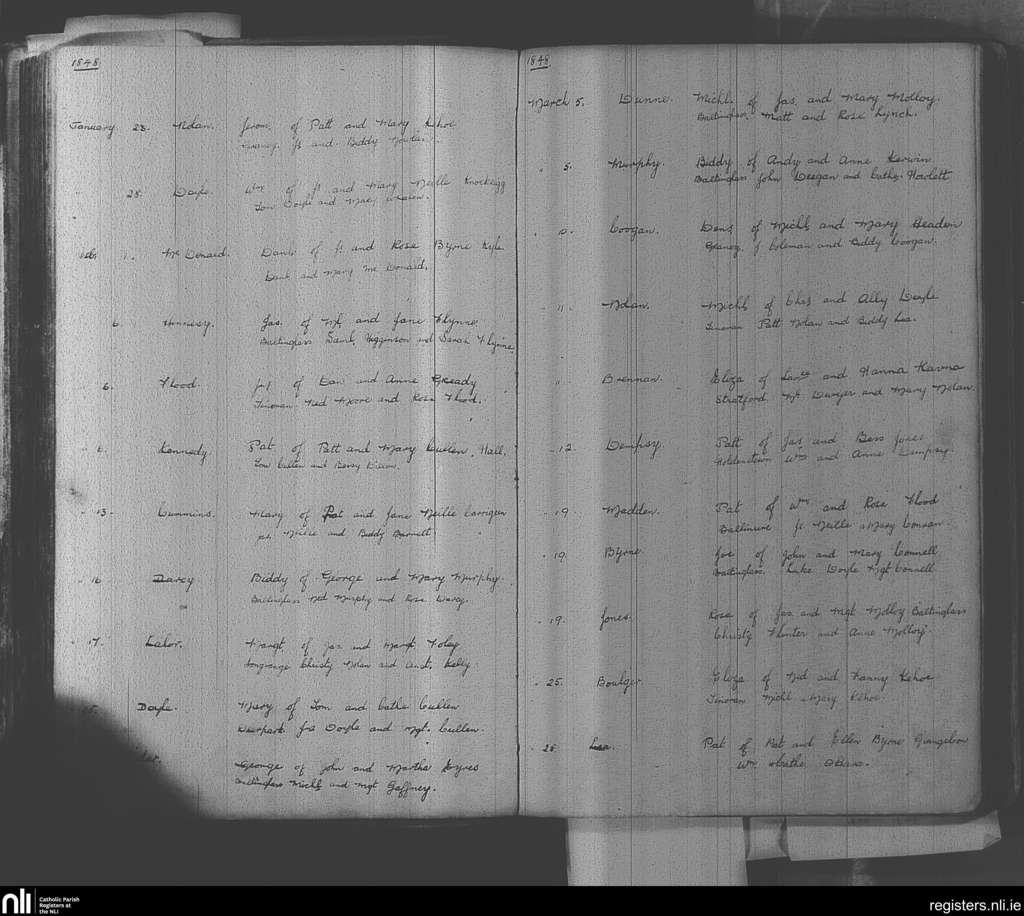 1848
January 28. Nolan. Jerom. of Patt and Mary Kehoe
Js and Biddy
28. Doyle. Wm of Js and Mary Neille Knockeigg
Tom Doyle and Mary Whelan.
Feb. 1. Mc Donald. Danl. of Js and Rose Byrne Kyle
Danl and Mary Mc Donald.
6. Hennesy. Jas. of Ml and Jane Flynne
Baltinglass Saml. Higginson and Sarah Flynne
6. Flood. of Edw and Anne Gready
Tinoran Ned Moore and Rose Flood.
6. Kennedy Pat of Patt and Mary Cullen, Hall,
Tom Cullen and Betsy
13. Cummins. Mary of Pat and Jane Neille Carrigeen
Neille and Biddy Barnett
16. Darcy Biddy of George and Mary Murphy.
Baltinglass Ned Murphy and Rose Darcy.
17. Lalor. Margt. of Jas and Margt Foley
Longrange Christy Nolan and Kelly
5. Doyle. Mary of Tom and Cathe Cullen
Deerpark Jas Doyle and Mgt. Cullen.
George of John and Martha Eyres
Baltinglass Michl and Mgt Gaffney.
1848
March 5. Dunne. Michl. of Jas. and Mary Molloy.
Baltinglass, Matt and Rose Lynch.
" 5. Murphy. Biddy of Andy and Anne Kerwin
Baltinglass John Deegan and Cathe. Hadett
" 10. Coogan. Denis of Michl and Mary Headen
Graney. J Coleman and Biddy Coogan.
" 11. Nolan. Michl of Chrs and Ally Doyle
Tinoran Patt Nolan and Biddy Lea.
" " Brennan. Eliza of Lauce and Hanna Kavna
Stratford Ml. Dwyer and Mary Nolan.
" 12. Dempsy. Patt of Jas and Bess Jones
Holdenstown Wm and Anne Dempsy.
" 19. Madden. Pat of Wm and Rose Flood
Baltinure Js Neille & Mary Conran.
" 19. Byrne Joe of John and Mary Connell
Baltinglass. Luke Doyle Mgt Connell
" 19. Jones. Rose of Jas and Mgt Molloy Baltinglass
Christy Hunter and Anne Molloy
" 25. Boulger. Eliza of Ned and Fanny Kehoe
Tinoran Michl & Mary Kehoe.
" 26. Lea. Pat of Pat and Ellen Byrne Grangecon
Wm
nli
Catholic Parish
Registers at
the NLI
registers.nli.ie